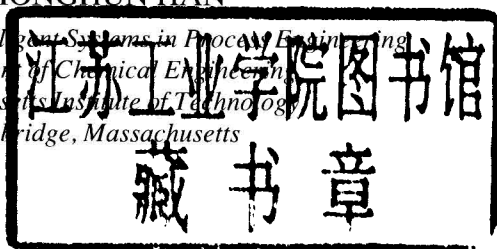 HONGHUN HAN
ligent Systems in Process Engineering
nt of Chemical Engineering
setts Institute of Technology
bridge, Massachusetts
江苏工业学院图书馆
藏书章